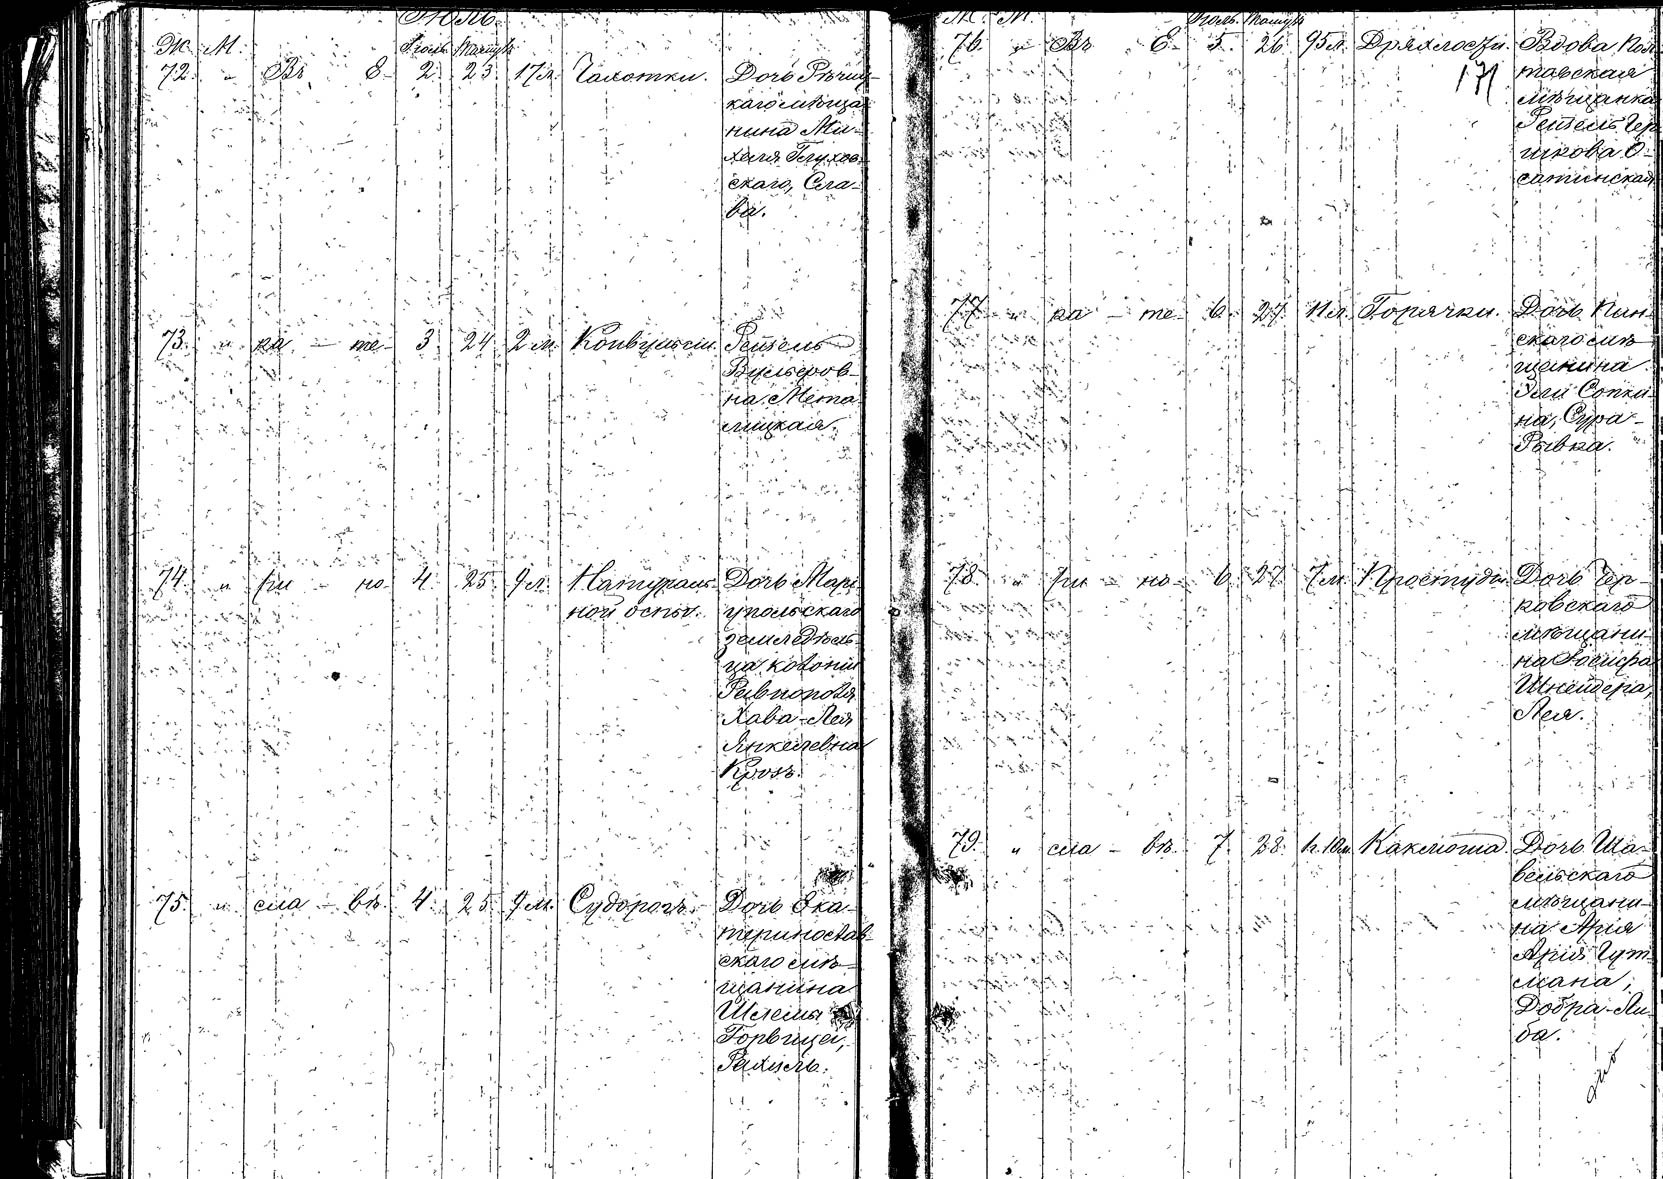 Іюль.
Ж. М. Іюль. Тамузъ
72. „ Въ Е- 2. 23. 17 л. Чахотки. Дочь Рѣчиц-
каго мѣща-
нина Ми-
хеля Глухов-
скаго, Сла-
ва.
73. „ ка - те- 3. 24. 2 м. Конвульсіи. Рейзель
Вульфов-
на Мета-
лицкая.
74. „ ри - но- 4. 25. 9 л. Натураль- Дочь Марі-
ной оспы. упольскаго
земледѣль-
ца колоніи
Равнополя
Хава-Лея
Янкелевна
Кроль.
75. „ сла - вѣ. 4. 25. 9 м. Судорогъ. Дочь Ека-
теринослав-
скаго мѣ-
щанина
Шлемы
Горвица,
Рахиль.
Ж. М. Іюль. Тамузъ
76. „ Въ Е- 5. 26. 95 л. Дряхлости. Вдова Пол-
171
тавская
мѣщанка
Рейзель Гер-
шкова О-
сатинская.
77. „ ка - те- 6. 27. 11 л. Горячки. Дочь Пин-
скаго мѣ-
щанина
Эли Сопки-
на, Сура-
Рывка.
78. „ ри - но- 6. 27. 7 м. Простуды. Дочь Чер-
ковскаго
мѣщани-
на Іосифа
Шнейдера,
Лея.
79. „ сла - вѣ. 7. 28. 1 г. 10 м. Каклюша. Дочь Ша-
вельскаго
мѣщани-
на Арія
Арія Гут-
мана,
Добра-Ли-
ба.